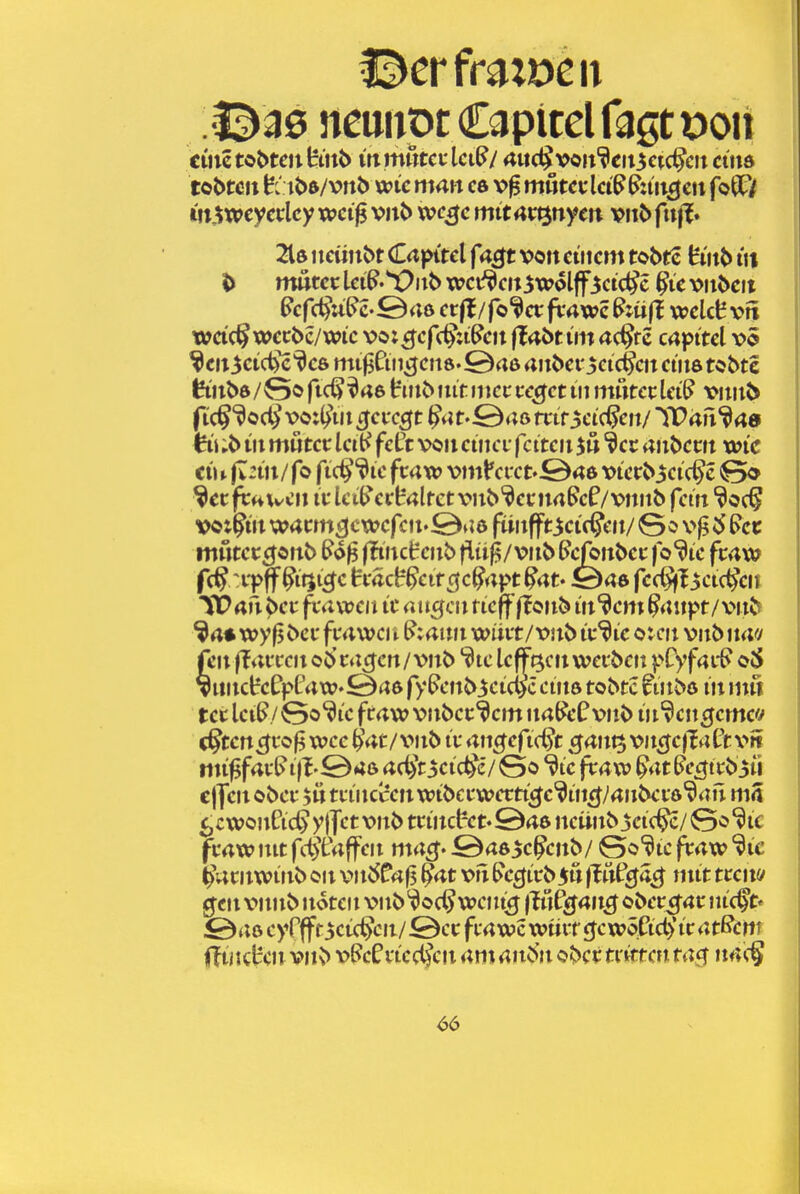 Der frawen
Das neundt Capitel sagt von
eine todten kind in mutter leib/ auch von den zeichen eins
todten kinds/vnd wie man es vß mutterleib bringen soll/
in zweyerley weiß vnd wege mit artznyen vnd sust.
Als neundt Capitel sagt von einem todtē kind in
d mutter leib. Vnd werden zwölff zeichē hie vnden
beschribē. Das erst/so der frawē brüst welck vn̄
weich werdē/wie vor geschriben stadt im achtē capitel vō
den zeichē des mißlingens. Das ander zeichen eins todtē
kinds/So sich das kind nit mer reget in mutterleib vnnd
sich doch vorhin geregt hat. Das trit zeichen/ Wañ das
kind in mutter leib felt von einer seiten zů der andern wie
ein stein/so sich die fraw vmkeret. Das vierd zeichē So
der frawen ir leib erkaltet vnd der nabel/vnnd sein doch
vorhin warm gewesen. Das fünfft zeichen/ So vß d ber
mutter gond böß stinckend flüß/vnd besonder so die fraw
sch rpff hitzige kräckheit gehapt hat. Das sechst zeichen
Wañ der frawen ir augen tieff stond in dem haupt/vnd
das wyß der frawen braun würt/vnd ir die oren vnd na⸗
sen starren od ragen/vnd die lefftzen werden plyfarb od
dunckelplaw. Das sybend zeichē eins todtē kinds in mů
ter leib/ So die fraw vnder dem nabel vnd in den geme⸗
chten groß wee hat/vnd ir angesicht gantz vngestalt vn̄
mißfarb ist. Das acht zeichē/ So die fraw hat begird zů
essen oder zů trincken widerwertige ding/anders dañ mā
gewonlich ysset vnd trincket. Das neünd zeichē/ So die
fraw nit schlaffen mag. Das zehend/ So die fraw die
harnwind on vnd laß hat vn̄ begird zů stůlgāg mit tren⸗
gen vnnd nöten vnd doch wenig stůlgang oder gar nicht.
Das eylfft zeichen/ Der frawē würt gewölich ir athem
stincken vnd vbel riechen am andn oder tritten tag nach
66